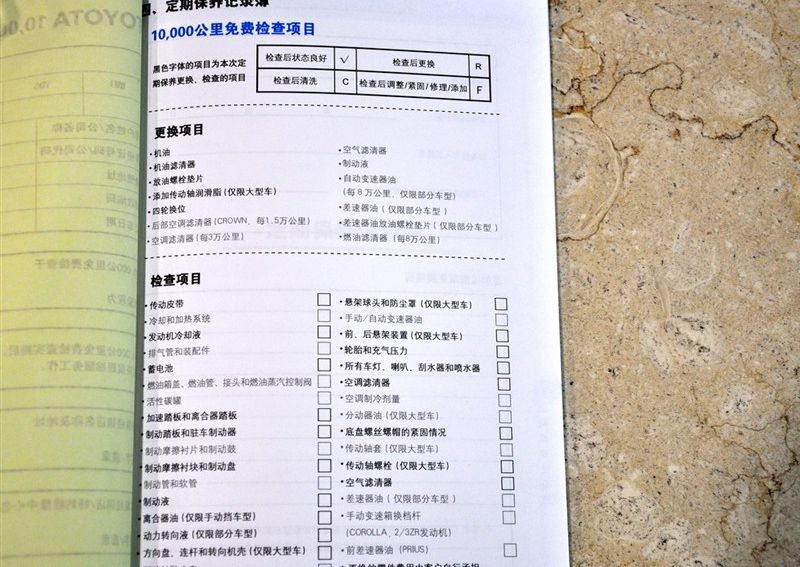 四、定期保养记录簿
10,000公里免费检查项目
黑色字体的项目为本次定
期保养更换、检查的项目
检查后状态良好 √ 检查后更换 R
检查后清洗 C 检查后调整/紧固/修理/添加 F
更换项目
•机油
•机油滤清器
•放油螺栓垫片
•添加传动轴润滑脂(仅限大型车)
•四轮换位
•后部空调滤清器(CROWN、每1.5万公里)
•空调滤清器(每3万公里)
•空气滤清器
•制动液
•自动变速器油
(每8万公里、仅限部分车型)
•差速器油(仅限部分车型)
•差速器油放油螺栓垫片(仅限部分车型)
•燃油滤清器(每8万公里)
检查项目
•传动皮带
•冷却和加热系统
•发动机冷却液
•排气管和装配件
•蓄电池
•燃油箱盖、燃油管、接头和燃油蒸汽控制阀
•活性碳罐
•加速踏板和离合器踏板
•制动踏板和驻车制动器
•制动摩擦衬片和制动鼓
•制动摩擦衬块和制动盘
•制动管和软管
•制动液
•离合器油(仅限手动挡车型)
•动力转向液(仅限部分车型)
•方向盘、连杆和转向机壳(仅限大型车)
•悬架球头和防尘罩(仅限大型车)
•手动/自动变速器油
•前、后悬架装置(仅限大型车)
•轮胎和充气压力
•所有车灯、喇叭、刮水器和喷水器
•空调滤清器
•空调制冷剂量
•分动器油(仅限大型车)
•底盘螺丝螺帽的紧固情况
•传动轴套(仅限大型车)
•传动轴螺栓(仅限大型车)
•空气滤清器
•差速器油(仅限部分车型)
•手动变速箱换档杆
(COROLLA、2/3ZR发动机)
•前差速器油(PRIUS)